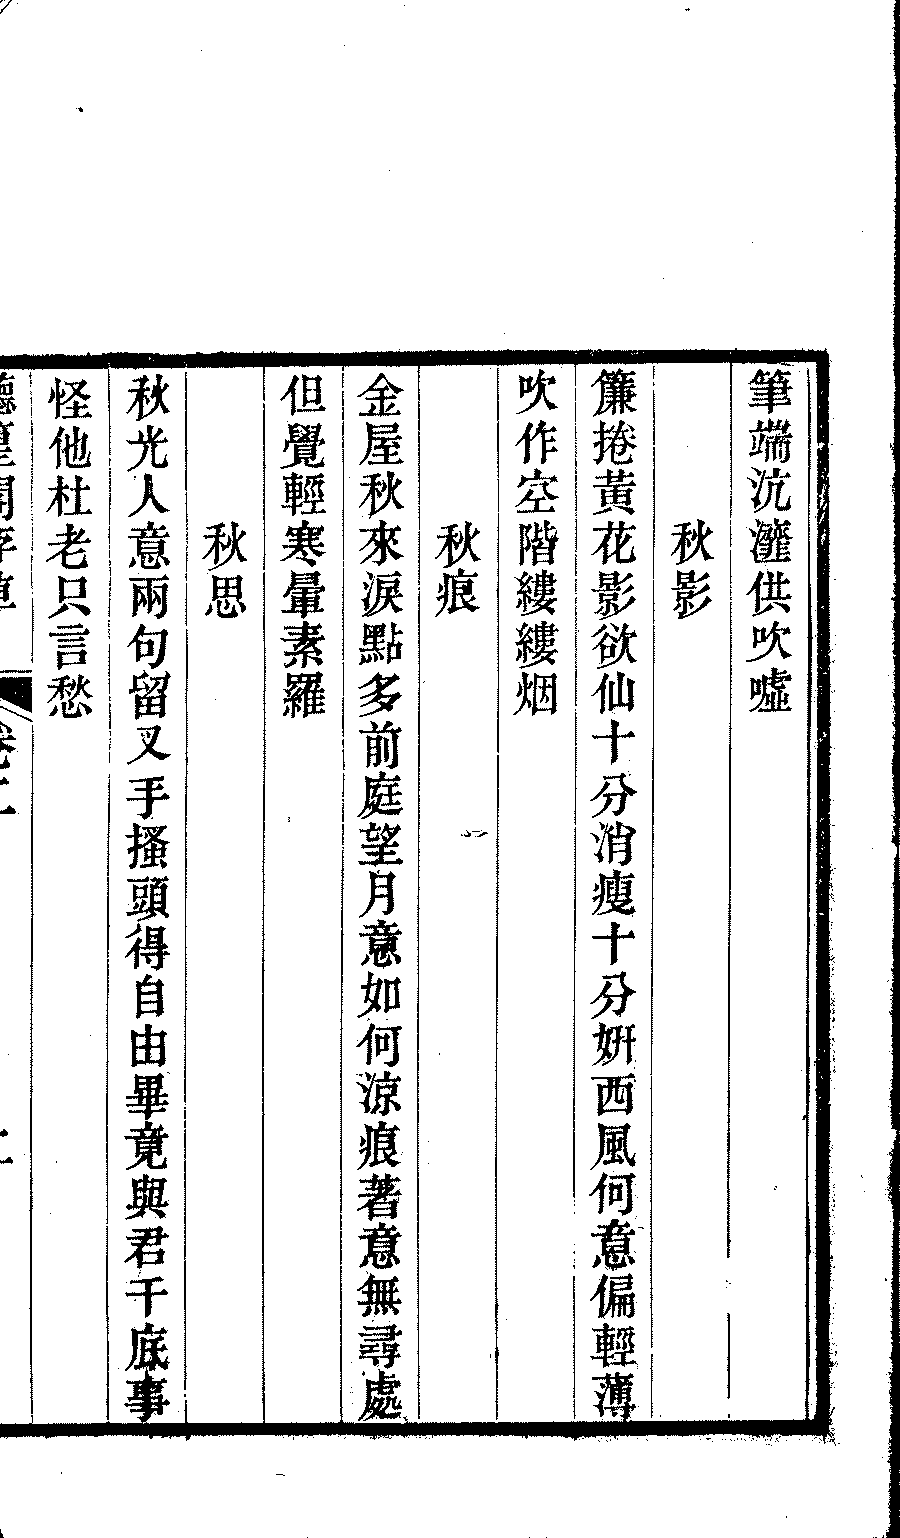 筆端沆瀣供吹噓
秋影
簾捲黃花影欲仙十分消瘦十分妍西風何意偏輕薄
吹作空階縷縷烟
秋痕
金屋秋來淚點多前庭望月意如何涼痕著意無尋處
但覺輕寒暈素羅
秋思
秋光人意兩句留叉手搔頭得自由畢竟與君干底事
怪他杜老只言愁
卷二